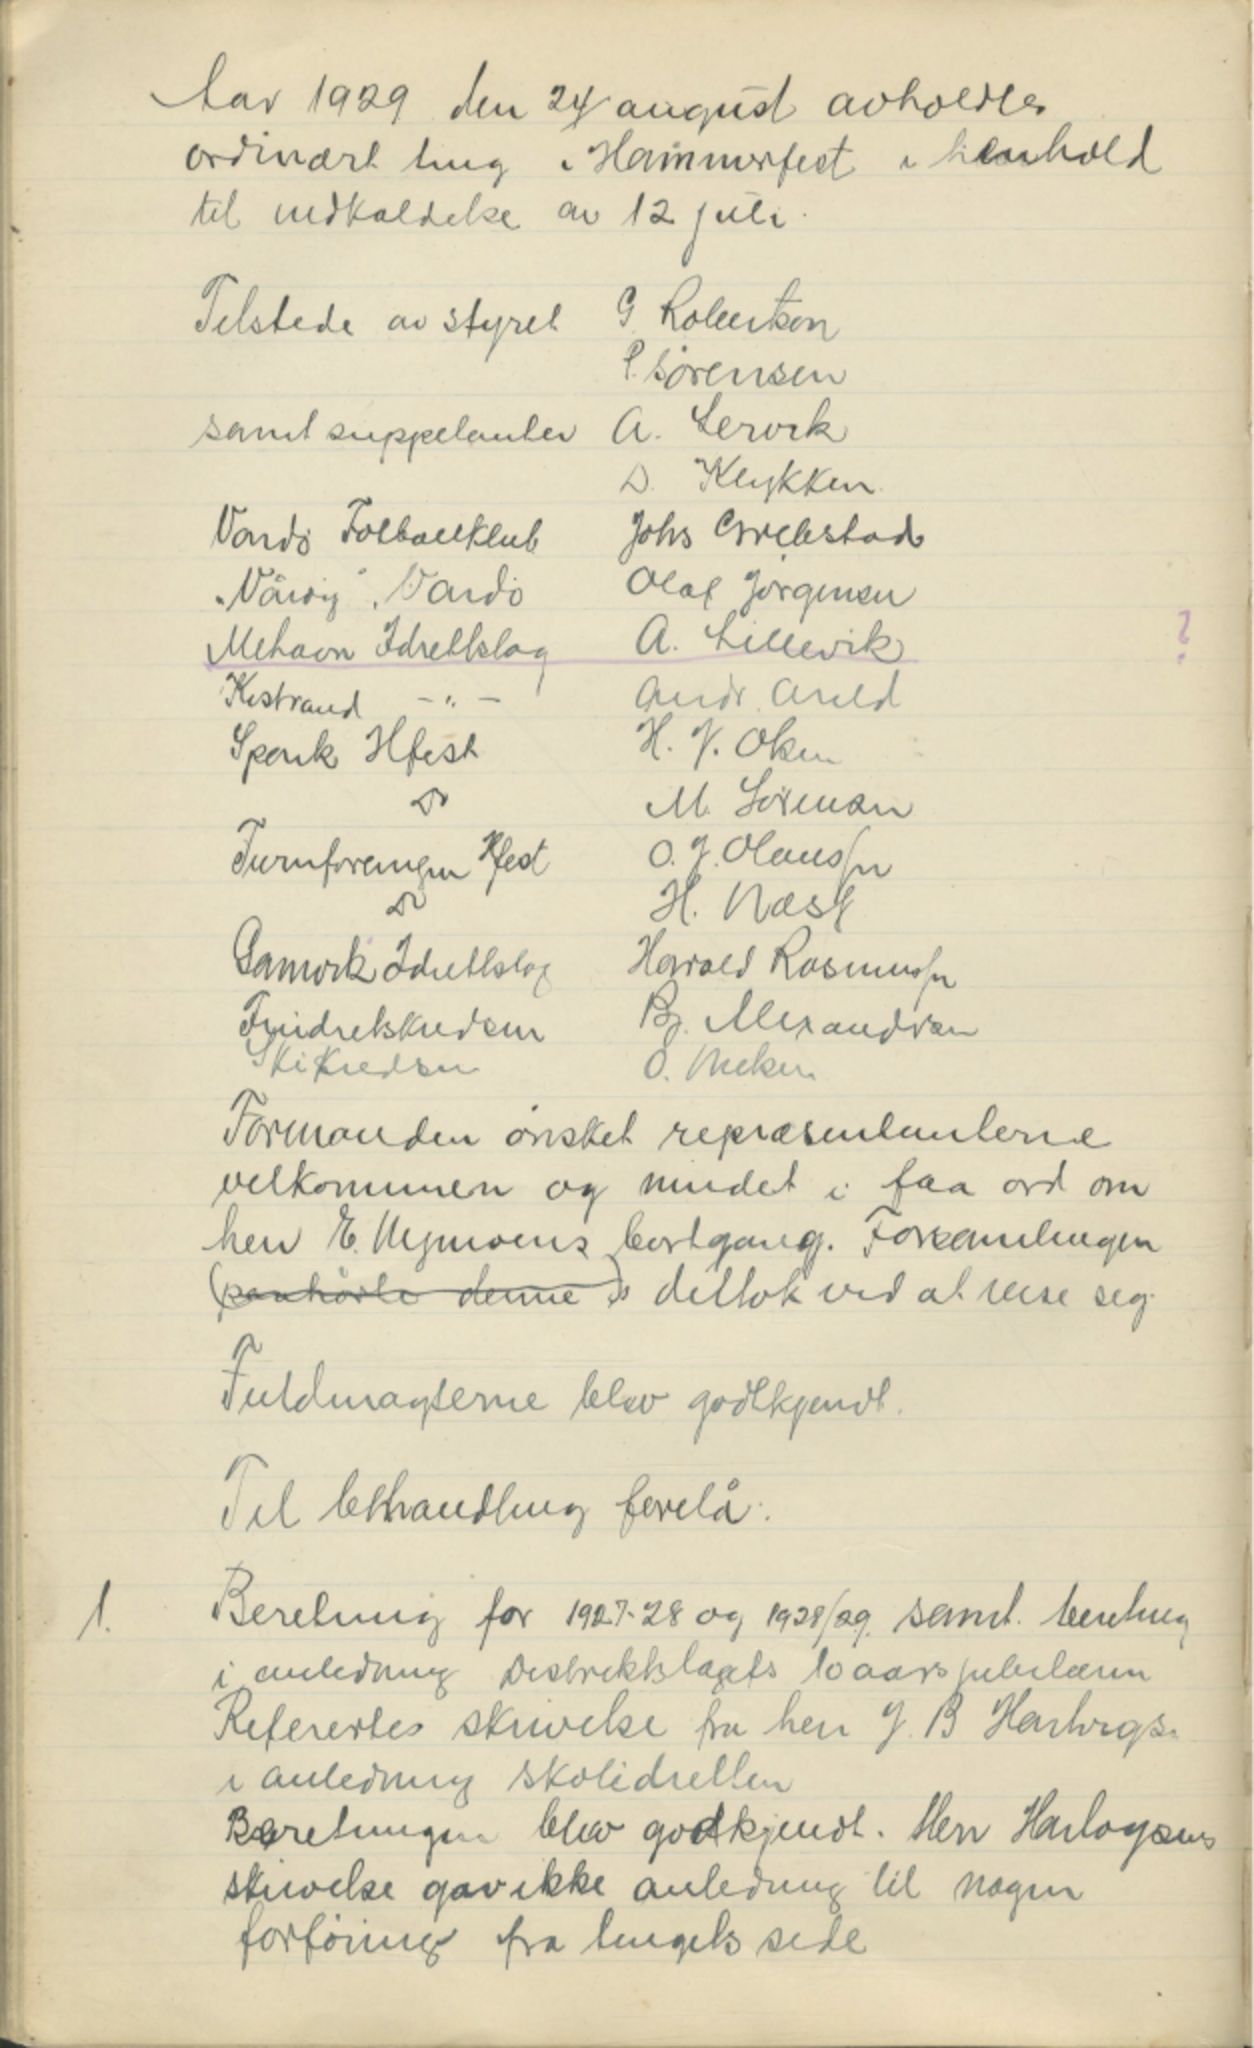 Aar 1929 den 24 august avholdtes
ordinært ting i Hammerfest i henhold
til indkaldelse av 12 juli.
Tilstede av styret G Robertson
P. Sørensen
samt suppelanter A. Lervik
D. Klykken
Vardö Fotballklub Johs Grebstad
"Vårdy", Vardö Olaf Jörgensen
Mehavn Idrettslag A. Lillevik ?
Kistrand -"- Andr. Areld
Sprek Hfest H. J. Olsen
Do M. Sörensen
Turnforeningen Hfest O. J. Olaussen
Do H. Næss
Gamvik Idrettslag Harald Rasmussen
Friidretskredsen Bj. Alexandersen
Skikredsen O.
Formanden önsket repræsentanterne
velkommen og mindet i faa ord om
herr E. bortgang. Forsamlingen
(paahörte denne) deltok ved at reise seg.
Fuldmagterne blev godtkjendt.
Til behandling forelå:
1. Beretning for 1927-28 og 1928/29. samt. beretning
i anledning Distriktslagets 10 aars jubilæum
Refertes skrivelse fra herr J. B Hartvigs.
i anledning skolidretten
Beretningen blev godkjendt. Herr Hartvigsens
skrivelse gav ikke anledning til nogen
forföining fra tingets side